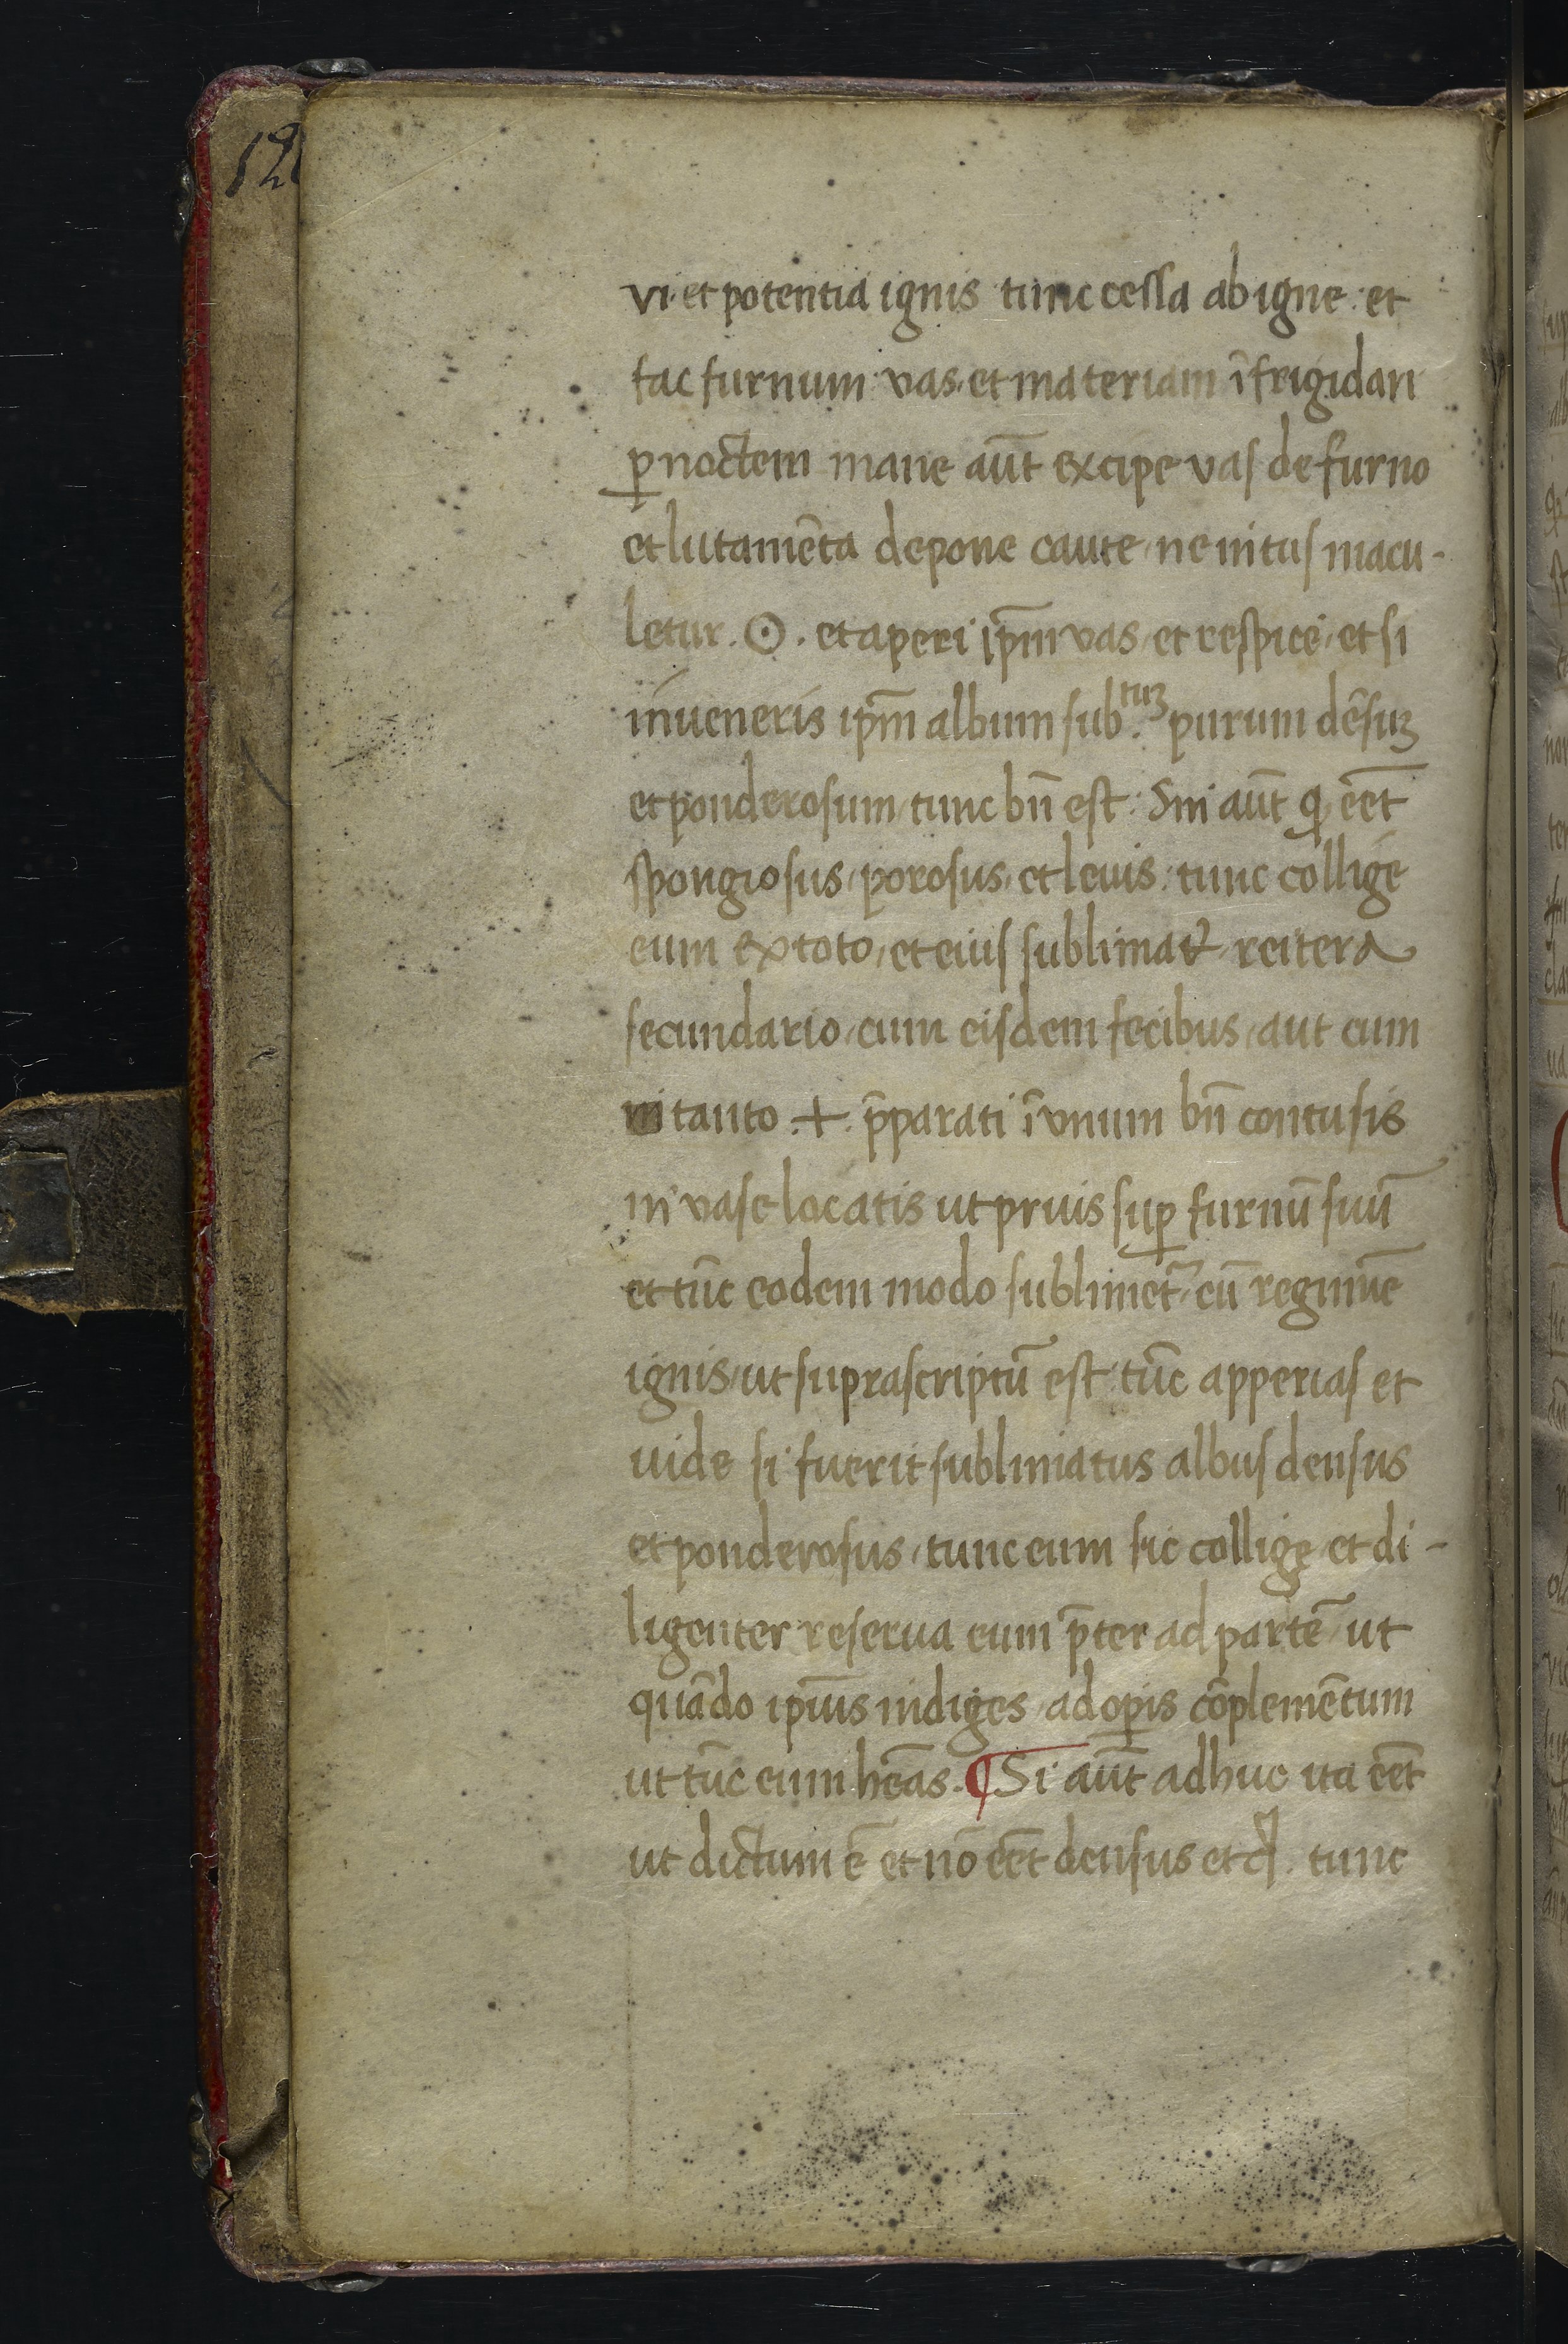 120
vi et potentia ignis tunc cessa ab igne et
fac furnum vas et materiam ĩfrigidari
ꝑ noctem mane aut̃ excipe vas de furno
et lutamẽta depone caute ne intus macu-
letur . ☉ . et aperi ip̃m vas et respice et si
inueneris ip̃m album sub . tuꝫ purum dẽsuꝫ
et ponderosum tunc bñ est . Sin aut̃ ꝙ eẽt
spongiosus porosus et leuis tunc collige
eum ex toto et eius sublimat̃ reitera
secundario cum eisdem fecibus aut cum
in tanto . + . p̃parati ĩ vnum bñ contusis
in vase locatis ut prius suꝑ furnũ suũ
et tũc eodem modo sublimet̃ cũ regimĩe
ignis ut suprascriptũ est tũc apperias et
uide si fuerit sublimatus albus densus
et ponderosus tunc eum sic collige et di-
ligenter reserua eum p̃ter ad partẽ ut
quãdo ipĩus indiges ad opis cõplemẽtum
ut tũc eum hẽas . ¶ Si aut̃ adhuc ita eẽt
ut dictum ẽ et nõ eẽt densus et . tunc